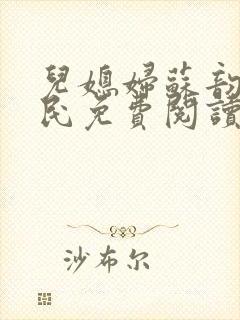 兒媳婦蘇韵
民免費閱讀
沙布尔